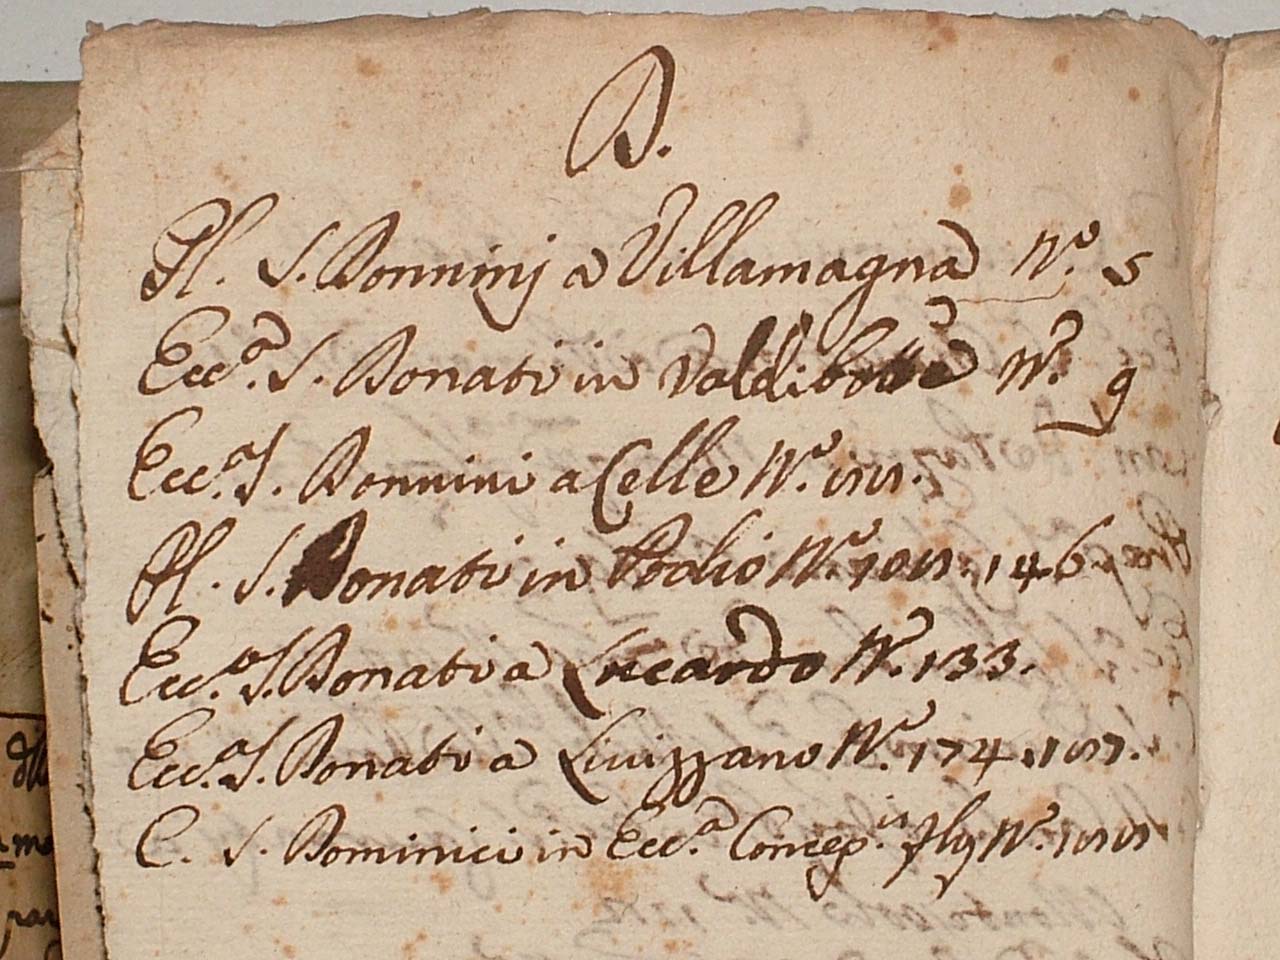 D.
Pl. S. Donninj a Villamagna N.º 5
Ecc.ª S. Donati in Valdibotte N.º 9
Ecc.ª S. Donnini a Celle N.º
Pl. S. Donati in Podio N.º 146
Ecc.ª S. Donati a Lucardo N.º 133.
Ecc.ª S. Donati a Liuizzano N.º 174.
C. S. Dominici in Ecc.ª Concep.is N.º